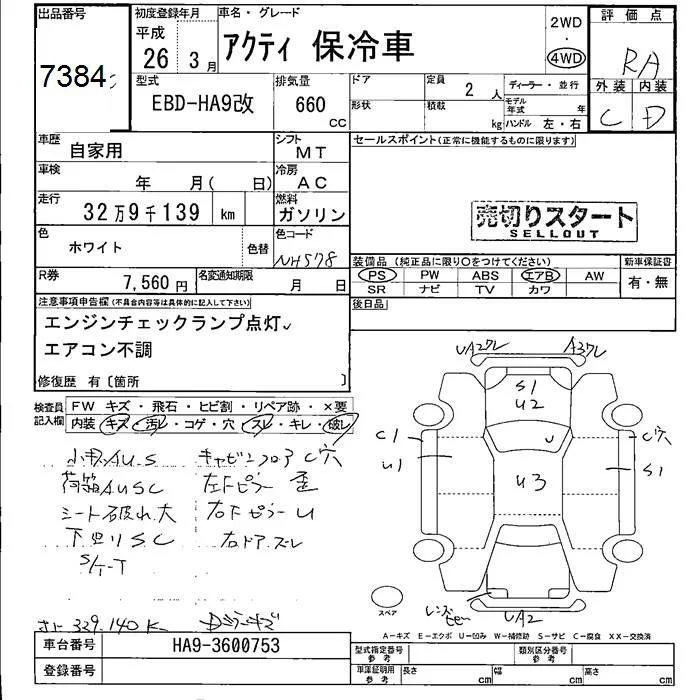 出品番号
7384
初度登録年月
平成
26 3月
車名・グレード
アクティ 保冷車
2WD
・
4WD
評価点
RA
外装 内装
C D
型式
EBD-HA9改
排気量
660 cc
ドア
形状
定員
2 人
積載
kg
ディーラー・並行
モデル年式 年
ハンドル 左・右
車歴
自家用
シフト
MT
セールスポイント(正常に機能するものに限ります)
車検
年 月( 日)
冷房
AC
走行
32万9千139 km
燃料
ガソリン
売切りスタート
SELLOUT
色
ホワイト
色替
色コード
NH578
装備品(純正品に限り○をつけてください)
新車保証書
PS PW ABS エアB AW
SR ナビ TV カワ
有・無
R券
7,560円
名変通知期限
月 日
後日品
注意事項申告欄(不具合内容等は具体的に記入して下さい)
エンジンチェックランプ点灯
エアコン不調
修復歴 有〔箇所 〕
検査員記入欄
FW キズ・飛石・ヒビ割・リペア跡・×要
内装 キズ・汚レ・コゲ・穴・スレ・キレ・破レ
UA2クレ A3クレ
S1
U2
C1
U1
U
C穴
S1
U3
AU.S キャビンフロアC穴
荷箱AUSC 左Fピラー歪
シート破れ大 右FピラーU
下回りSC 右ドアズレ
S/T-T
スペア
UA2
329.140K
A-キズ E-エクボ U-凹み W-補修跡 S-サビ C-腐食 XX-交換済
車台番号
HA9-3600753
登録番号
型式指定番号
参考
類別区分番号
参考
車庫証明用
参考
長さ cm 幅 cm 高さ cm